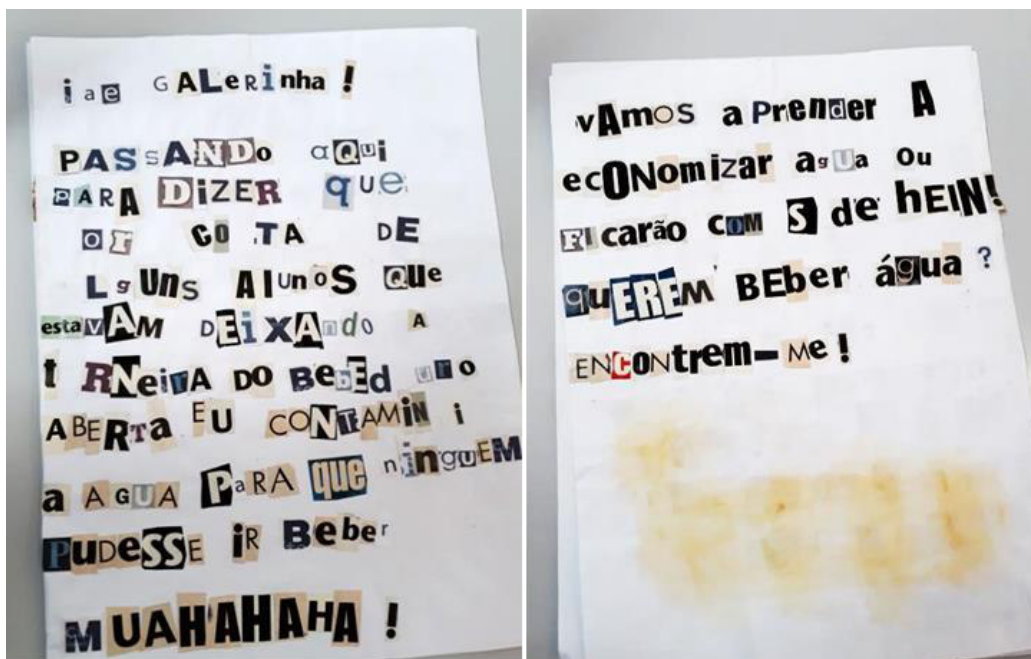 iae GALerinha !
PASsANDo aQui
PARA DiZER que
or CO TA DE
LgUns AlunoS Que
estavAM DEiXAndo A
t RNeiRA DO BeBEd uro
ABERTa EU CONTAMiN i
a AGUA PaRA que ninguEM
PUDESSE iR Beber
MUAHAHAHA !
vAmos aPrender A
ecONomizar agUa Ou
FIcarão cOM S de hEIN!
quEREM BEber água ?
ENContrem-Me !